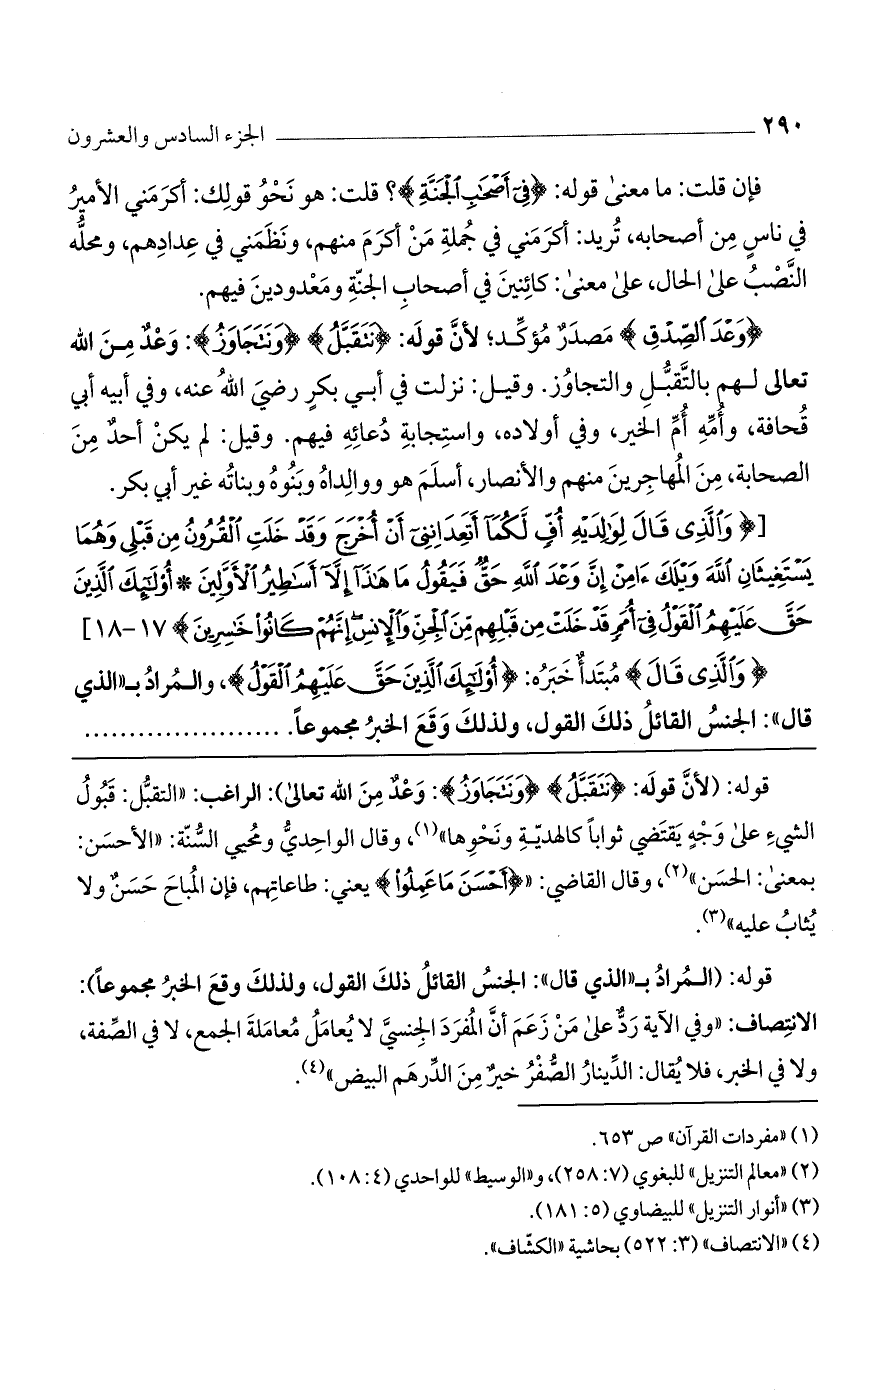 ٢٩٠ ـــــــــــ الجزء السادس والعشرون
فإن قلت: ما معنىٰ قوله: ﴿فِىٓ أَصْحَٰبِ ٱلْجَنَّةِ﴾؟ قلت: هو نَحْوُ قولِك: أكرَمَني الأميرُ
في ناسٍ مِن أصحابه، تُريد: أكرَمَني في جُملةِ مَنْ أكرَمَ منهم، ونَظَمَني في عِدادِهم، ومحلُّه
النَّصْبُ علىٰ الحال، علىٰ معنىٰ: كائِنينَ في أصحابِ الجنّةِ ومَعْدودينَ فيهم.
﴿وَعْدَ ٱلصِّدْقِ﴾ مَصدَرٌ مُؤكِّد؛ لأنَّ قولَه: ﴿نَتَقَبَّلُ﴾ ﴿وَنَتَجَاوَزُ﴾: وَعْدٌ مِنَ الله
تعالى لهم بالتَّقبُّلِ والتجاوُز. وقيل: نزلت في أبي بكرٍ رضيَ اللهُ عنه، وفي أبيه أبي
قُحافة، وأُمِّهِ أُمِّ الخير، وفي أولاده، واستِجابةِ دُعائِهِ فيهم. وقيل: لم يكنْ أحدٌ مِنَ
الصحابة، مِنَ المُهاجِرينَ منهم والأنصار، أسلَمَ هو ووالِداهُ وبَنُوهُ وبناتُه غير أبي بكر.
[﴿وَٱلَّذِى قَالَ لِوَٰلِدَيْهِ أُفٍّ لَّكُمَآ أَتَعِدَانِنِىٓ أَنْ أُخْرَجَ وَقَدْ خَلَتِ ٱلْقُرُونُ مِن قَبْلِى وَهُمَا
يَسْتَغِيثَانِ ٱللَّهَ وَيْلَكَ ءَامِنْ إِنَّ وَعْدَ ٱللَّهِ حَقٌّ فَيَقُولُ مَا هَٰذَآ إِلَّآ أَسَٰطِيرُ ٱلْأَوَّلِينَ * أُوْلَٰٓئِكَ ٱلَّذِينَ
حَقَّ عَلَيْهِمُ ٱلْقَوْلُ فِىٓ أُمَمٍ قَدْ خَلَتْ مِن قَبْلِهِم مِّنَ ٱلْجِنِّ وَٱلْإِنسِ إِنَّهُمْ كَانُواْ خَٰسِرِينَ﴾ ١٧-١٨]
﴿وَٱلَّذِى قَالَ﴾ مُبتَدأٌ خَبَرُه: ﴿أُوْلَٰٓئِكَ ٱلَّذِينَ حَقَّ عَلَيْهِمُ ٱلْقَوْلُ﴾، والمُرادُ بـ«الذي
قال»: الجنسُ القائلُ ذلكَ القول، ولذلكَ وَقَعَ الخبرُ مجموعاً. ......................
قوله: (لأنَّ قولَه: ﴿نَتَقَبَّلُ﴾ ﴿وَنَتَجَاوَزُ﴾: وَعْدٌ مِنَ الله تعالىٰ): الراغب: «التقبُّل: قَبُولُ
الشيءِ علىٰ وَجْهٍ يَقتَضي ثواباً كالهديّةِ ونَحْوِها»(١)، وقال الواحِديُّ ومُحيي السُّنّة: «الأحسَن:
بمعنىٰ: الحَسَن»(٢)، وقال القاضي: «﴿أَحْسَنَ مَا عَمِلُواْ﴾ يعني: طاعاتِهم، فإن المُباحَ حَسَنٌ ولا
يُثابُ عليه»(٣).
قوله: (المُرادُ بـ«الذي قال»: الجنسُ القائلُ ذلكَ القول، ولذلكَ وقعَ الخبرُ مجموعاً):
الانتِصاف: «وفي الآية ردٌّ علىٰ مَنْ زَعَمَ أنَّ المُفرَدَ الجِنسيَّ لا يُعامَلُ مُعامَلةَ الجمع، لا في الصِّفة،
ولا في الخبر، فلا يُقال: الدِّينارُ الصُّفْرُ خيرٌ مِنَ الدِّرهَم البيض»(٤).
(١) «مفردات القرآن» ص ٦٥٣.
(٢) «معالم التنزيل» للبغوي (٧: ٢٥٨)، و«الوسيط» للواحدي (٤: ١٠٨).
(٣) «أنوار التنزيل» للبيضاوي (٥: ١٨١).
(٤) «الانتصاف» (٣: ٥٢٢) بحاشية «الكشّاف».